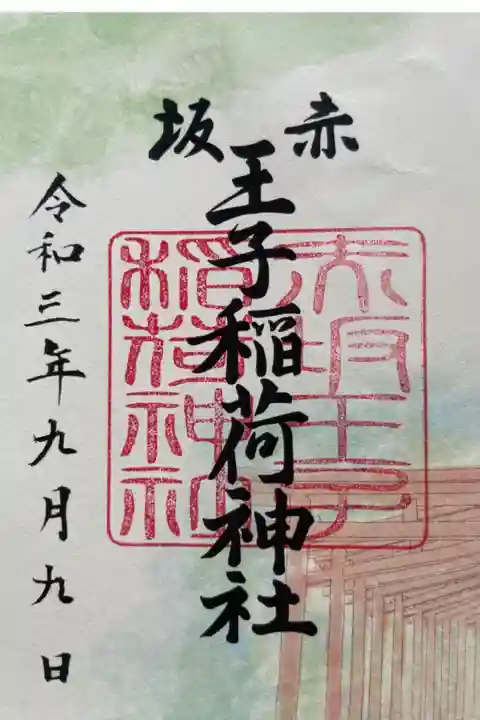 赤坂
王子稲荷神社
赤坂王子
稲荷神社
令和三年九月九日